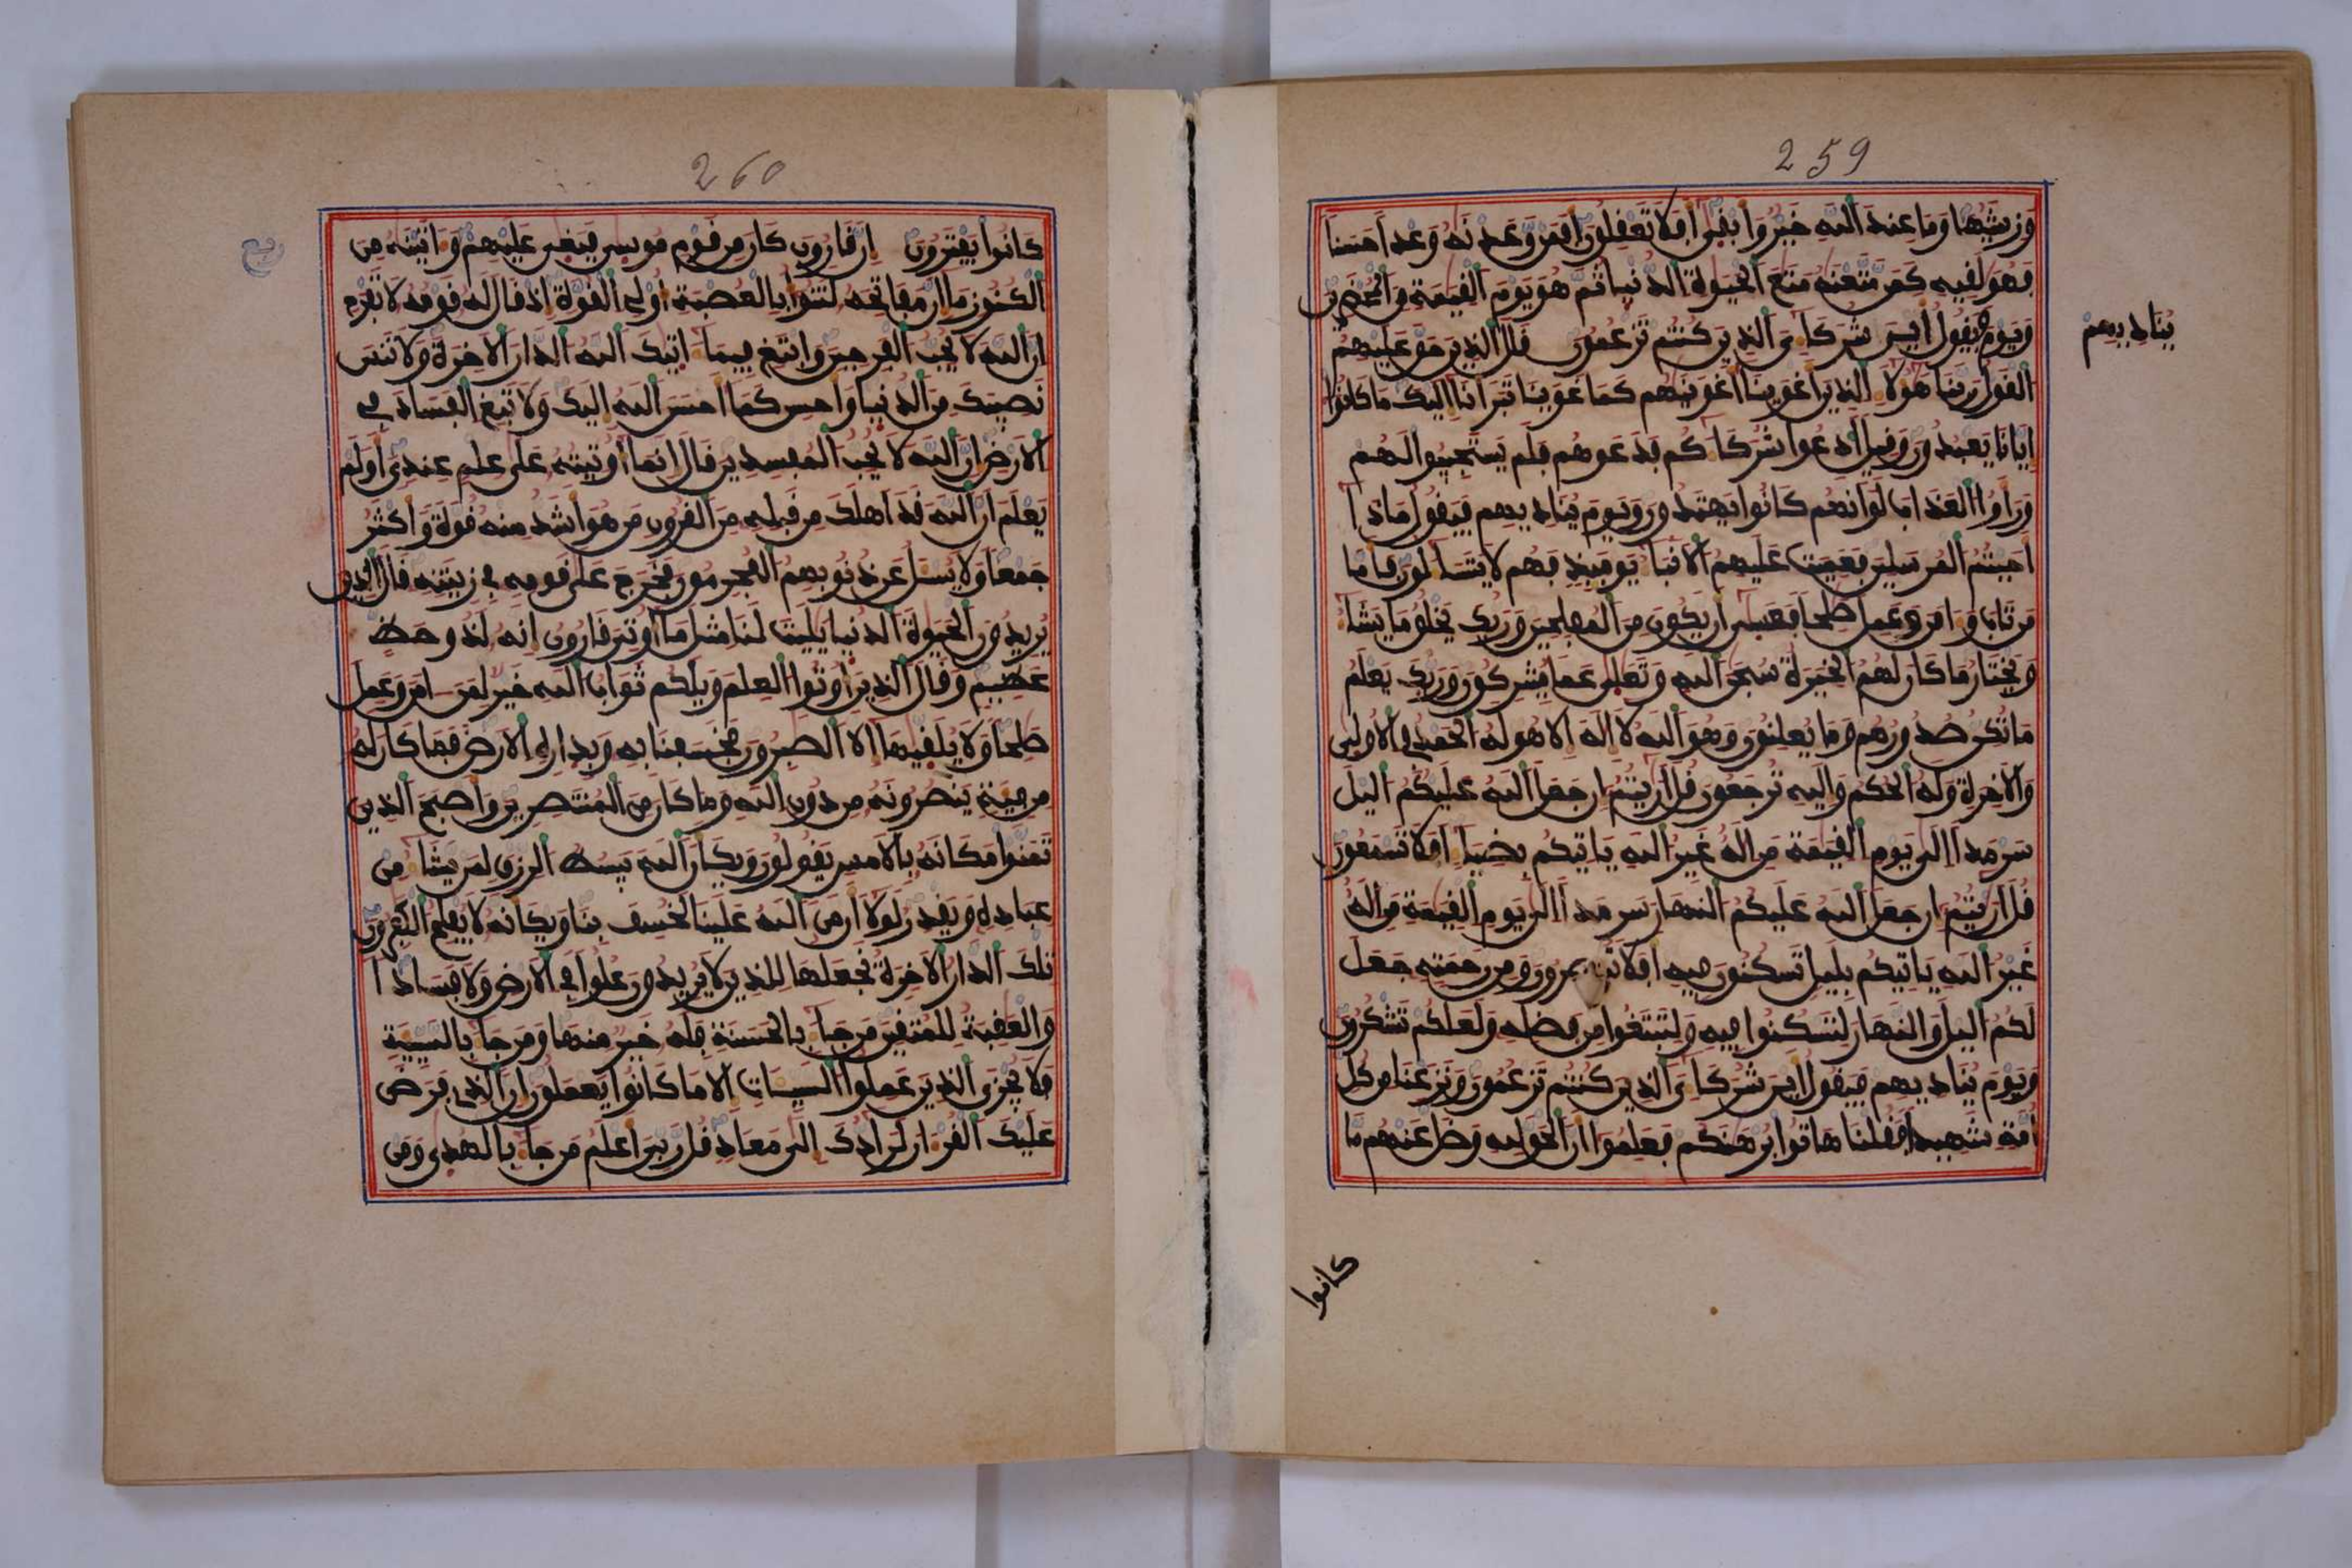 259
وزينتها وما عند الله خير وأبفى أفلا تعفلون أفمن وعدنه وعدا حسنا
فهو لفيه كمن متعنه متع الحيوة الدنيا ثم هو يوم الفيمة من المحضرين
ويوم فيفول أين شركاءى الذين كنتم تزعمون فال الذين حق عليهم
يناديهم
الفول ربنا هؤلاء الذين أغوينا أغوينهم كما غوينا تبرأنا إليك ما كانوا
إيانا يعبدون وفيل ادعوا شركاءكم فدعوهم فلم يستجيبوا لهم
ورأوا العذاب لو أنهم كانوا يهتدون ويوم يناديهم فيفول ماذا
أجبتم المرسلين فعميت عليهم الأنباء يومئذ فهم لا يتساءلون فأما
من تاب وءامن وعمل صلحا فعسى أن يكون من المفلحين وربك يخلق ما يشاء
ويختار ما كان لهم الخيرة سبحن الله وتعلى عما يشركون وربك يعلم
ما تكن صدورهم وما يعلنون وهو الله لا إله إلا هو له الحمد في الأولى
والأخرة وله الحكم وإليه ترجعون فل أريتم إن جعل الله عليكم اليل
سرمدا إلى يوم الفيمة من إله غير الله ياتيكم بضياء افلا تسمعون
فل أريتم إن جعل الله عليكم النهار سرمدا إلى يوم الفيمة من إله
غير الله ياتيكم بليل تسكنون فيه افلا تبصرون ومن رحمته جعل
لكم اليل والنهار لتسكنوا فيه ولتبتغوا من فضله ولعلكم تشكرون
ويوم يناديهم فيفول أين شركاءى الذين كنتم تزعمون ونزعنا من كل
أمة شهيدا ففلنا هاتوا برهنكم فعلموا أن الحق لله وضل عنهم ما
كانوا
260
كانوا يفترون إن فارون كان من فوم موسى فبغى عليهم وءاتينه من
الكنوز ما إن مفاتحه لتنوأ بالعصبة أولى الفوة إذ فال له فومه لا تفرح
إن الله لا يحب الفرحين وابتغ فيما ءاتيك الله الدار الأخرة ولا تنس
نصيبك من الدنيا وأحسن كما أحسن الله إليك ولا تبغ الفساد في
الأرض إن الله لا يحب المفسدين فال إنما أوتيته على علم عندى أولم
يعلم أن الله فد أهلك من فبله من الفرون من هو أشد منه فوة وأكثر
جمعا ولا يسئل عن ذنوبهم المجرمون فخرج على فومه في زينته فال الذين
يريدون الحيوة الدنيا يليت لنا مثل ما أوتى فارون إنه لذو حظ
عظيم وفال الذين أوتوا العلم ويلكم ثواب الله خير لمن ءامن وعمل
صلحا ولا يلفيها إلا الصبرون فخسفنا به وبداره الأرض فما كان له
من فئة ينصرونه من دون الله وما كان من المنتصرين وأصبح الذين
تمنوا مكانه بالأمس يفولون ويكأن الله يبسط الرزق لمن يشاء من
عباده ويفدر لولا أن من الله علينا لخسف بنا ويكأنه لا يفلح الكفرون
تلك الدار الأخرة نجعلها للذين لا يريدون علوا في الأرض ولا فسادا
والعفبة للمتفين من جاء بالحسنة فله خير منها ومن جاء بالسيئة
فلا يجزى الذين عملوا السيئات إلا ما كانوا يعملون إن الذي فرض
عليك الفرءان لرادك إلى معاد فل ربي أعلم من جاء بالهدى ومن